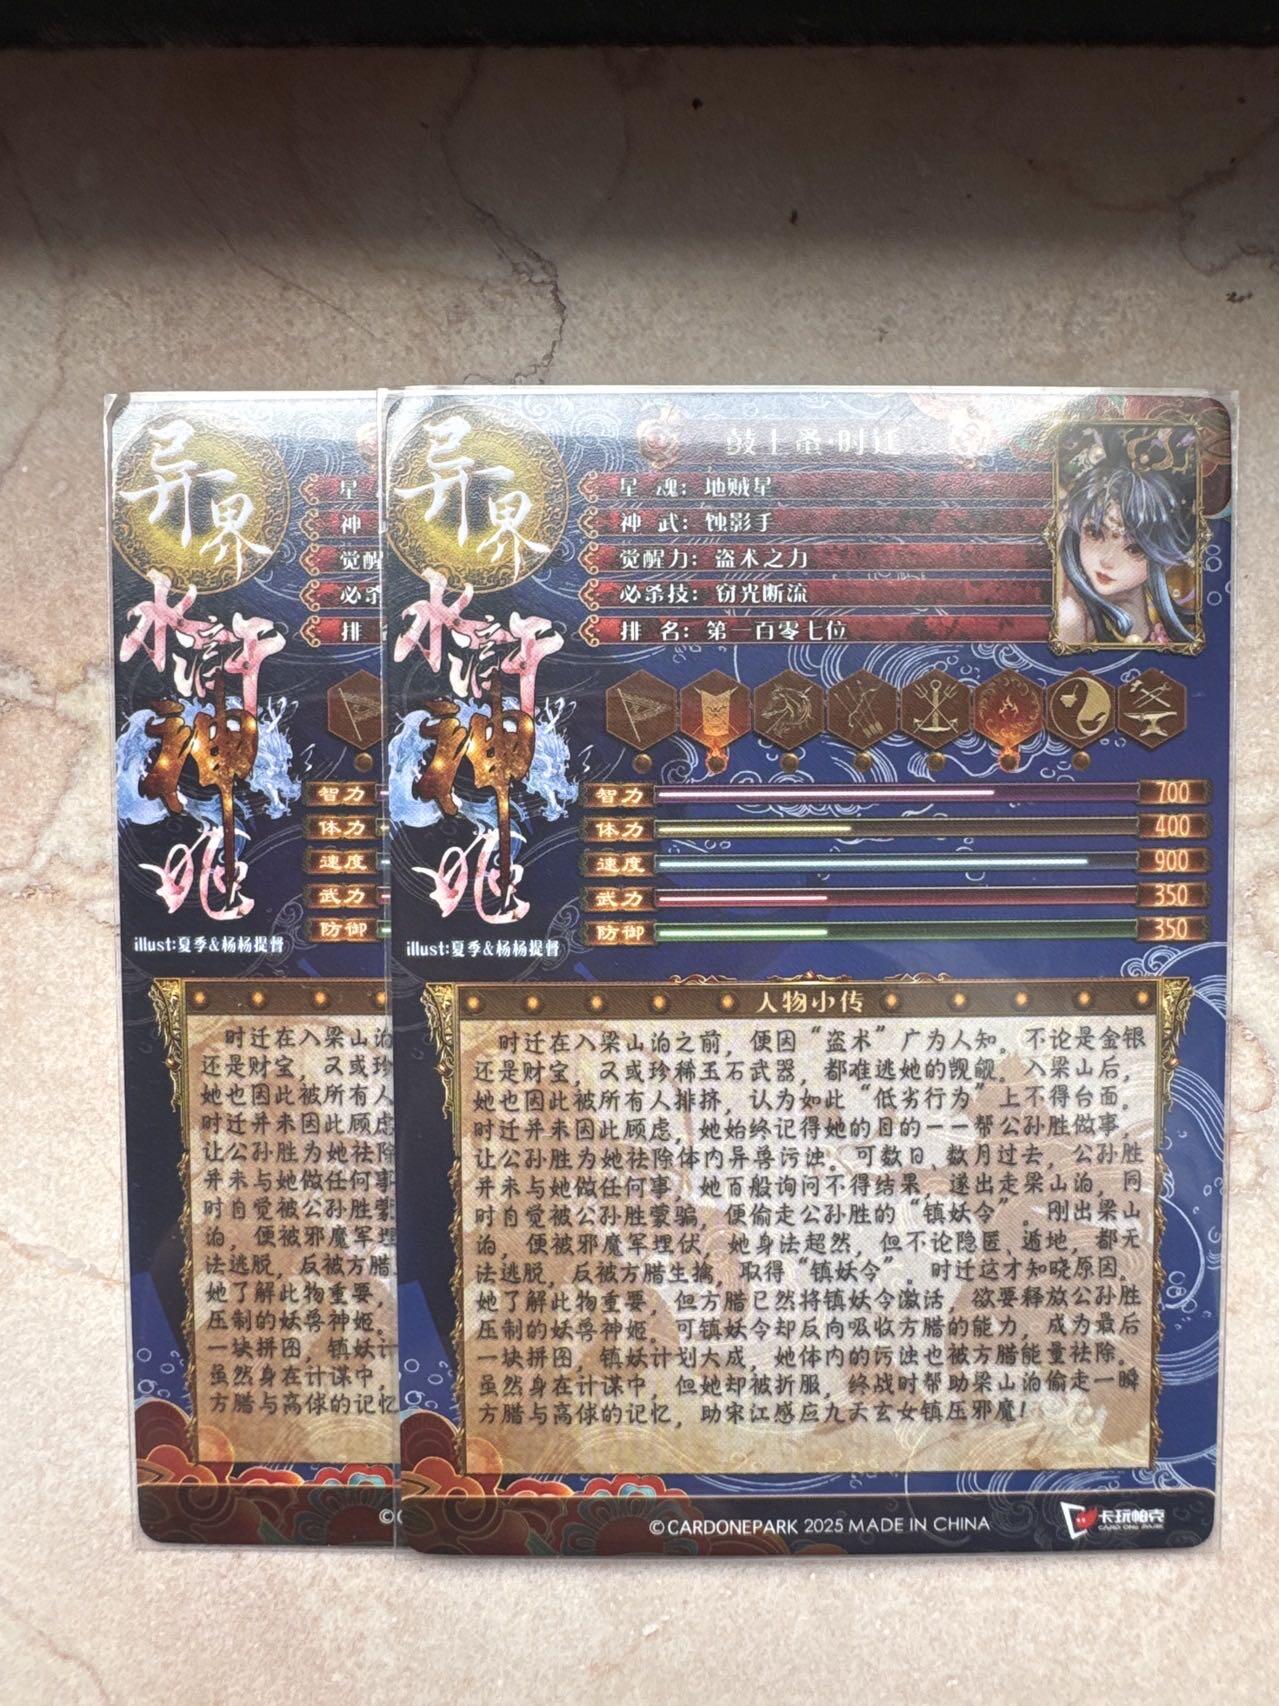 异界
水浒
神
姬
illust:夏季&杨杨提督
星
神 武
觉醒
必杀
排 名
智力
体力
速度
武力
防御
时迁在入梁山泊
还是财宝，又或珍
她也因此被所有人
时迁并未因此顾虑
让公孙胜为她祛除
并未与她做任何事
时自觉被公孙胜蒙
泊，便被邪魔军埋
法逃脱，反被方腊
她了解此物重要，
压制的妖兽神姬。
一块拼图，镇妖计
虽然身在计谋中，
方腊与高俅的记忆
©C
异界
水浒
神
姬
illust:夏季&杨杨提督
鼓上蚤·时迁
星 魂：地贼星
神 武：蚀影手
觉醒力：盗术之力
必杀技：窃光断流
排 名：第一百零七位
智力 700
体力 400
速度 900
武力 350
防御 350
人物小传
时迁在入梁山泊之前，便因“盗术”广为人知。不论是金银
还是财宝，又或珍稀玉石武器，都难逃她的觊觎。入梁山后，
她也因此被所有人排挤，认为如此“低劣行为”上不得台面。
时迁并未因此顾虑，她始终记得她的目的——帮公孙胜做事，
让公孙胜为她祛除体内异兽污浊。可数日、数月过去，公孙胜
并未与她做任何事，她百般询问不得结果，遂出走梁山泊，同
时自觉被公孙胜蒙骗，便偷走公孙胜的“镇妖令”。刚出梁山
泊，便被邪魔军埋伏，她身法超然，但不论隐匿、遁地，都无
法逃脱，反被方腊生擒，取得“镇妖令”。时迁这才知晓原因。
她了解此物重要，但方腊已然将镇妖令激活，欲要释放公孙胜
压制的妖兽神姬。可镇妖令却反向吸收方腊的能力，成为最后
一块拼图，镇妖计划大成，她体内的污浊也被方腊能量祛除。
虽然身在计谋中，但她却被折服，终战时帮助梁山泊偷走一瞬
方腊与高俅的记忆，助宋江感应九天玄女镇压邪魔！
©CARDONEPARK 2025 MADE IN CHINA
卡玩帕克
CARD ONE PARK